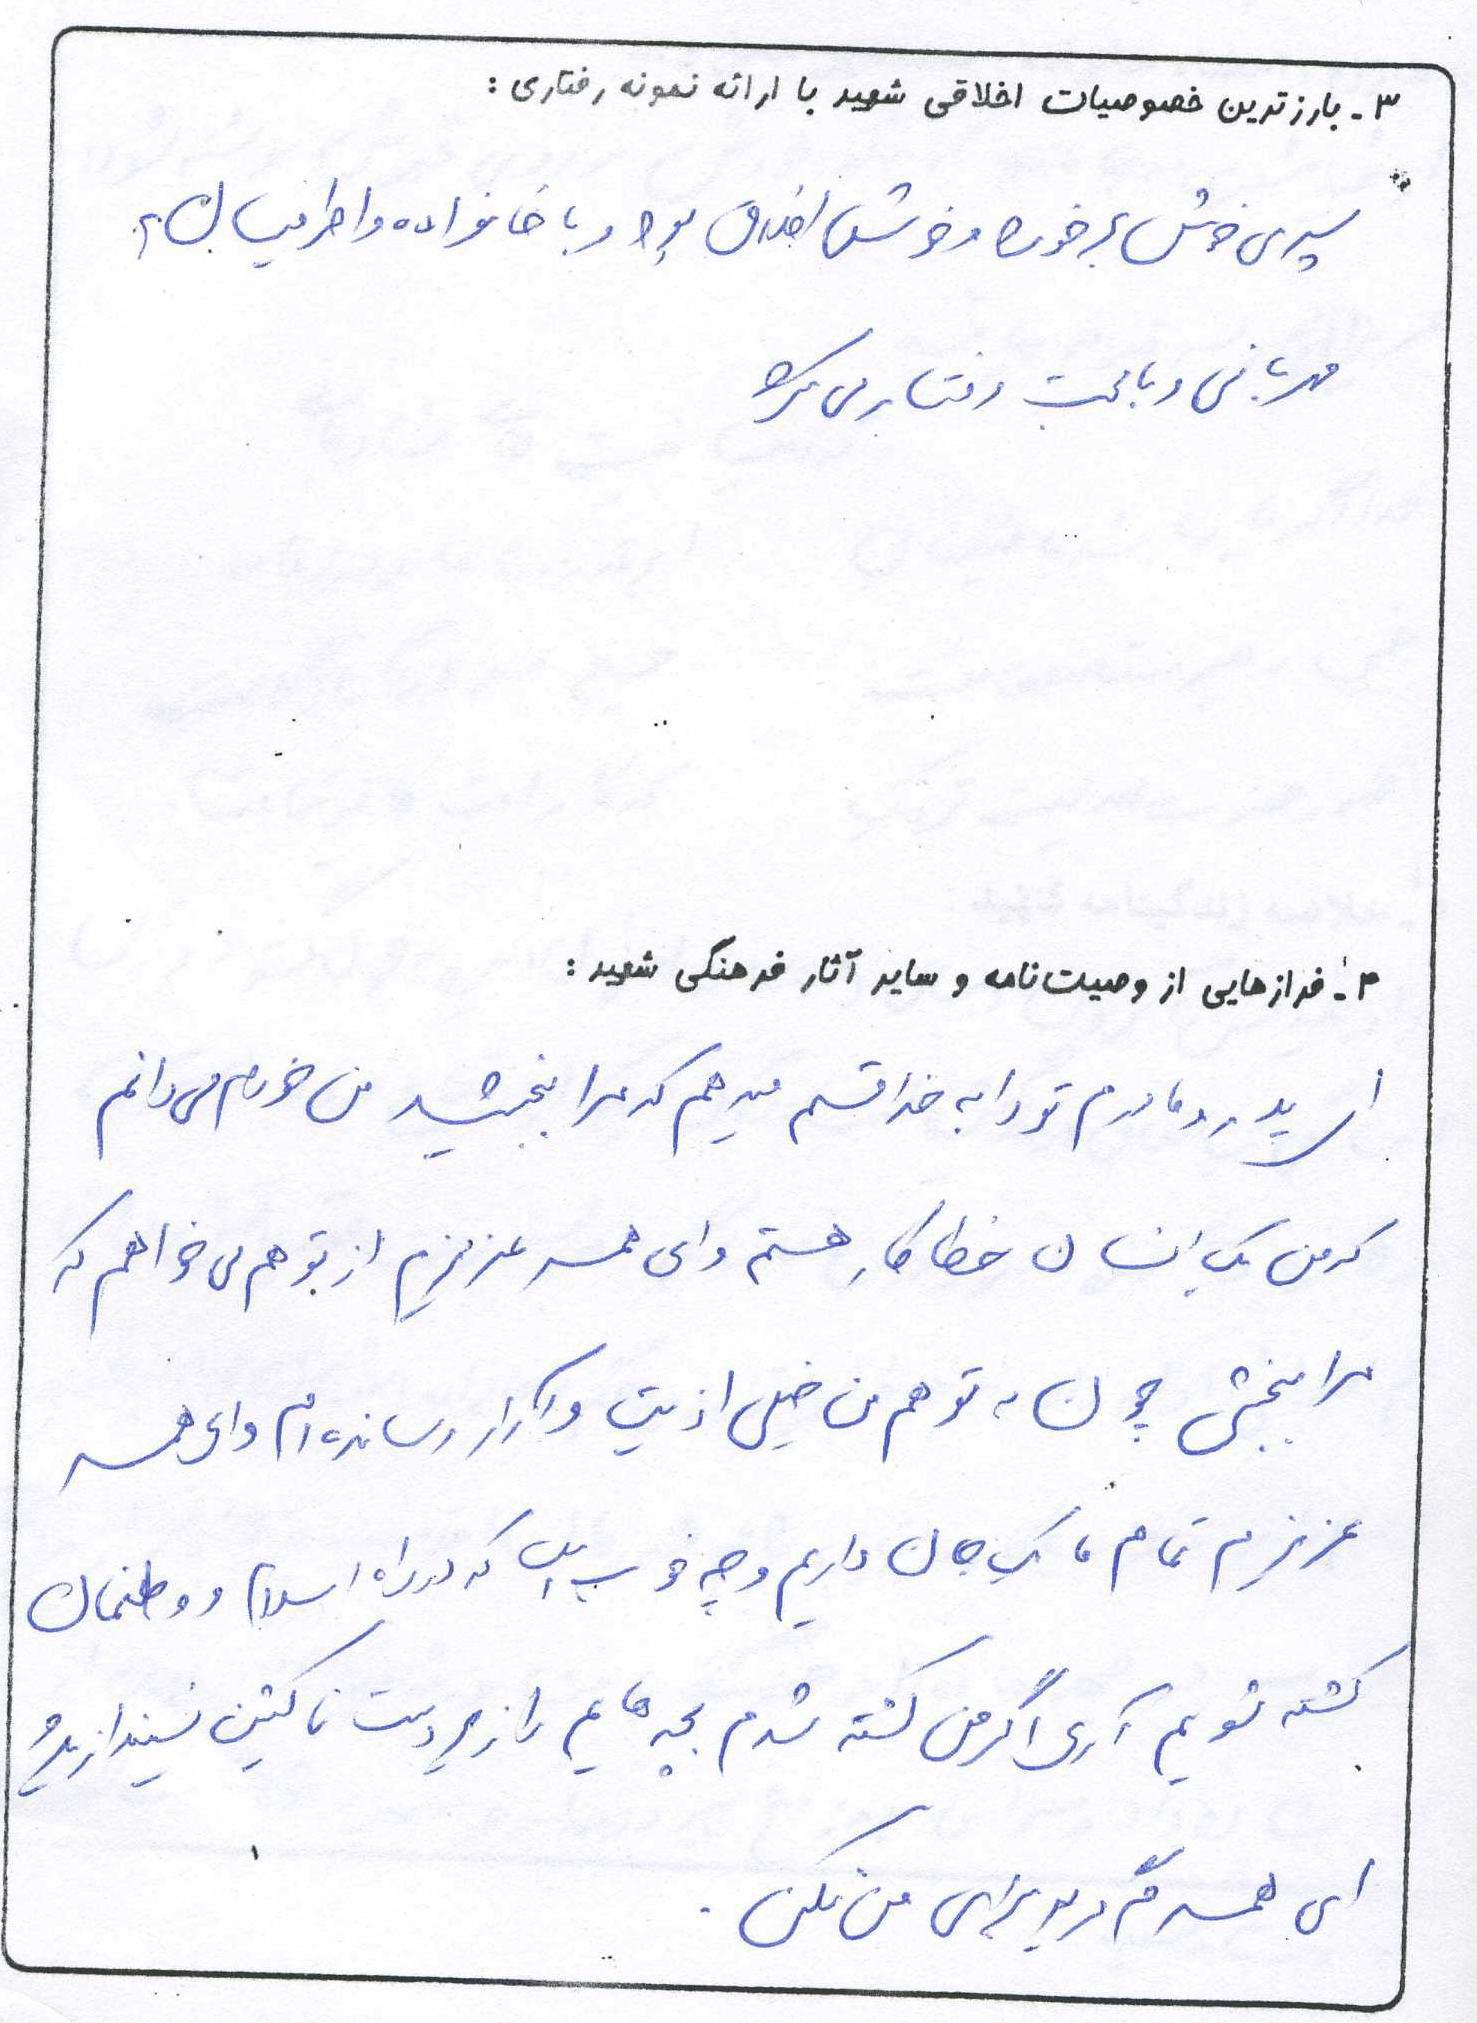 ۳- بارزترین خصوصیات اخلاقی شهید با ارائه نمونه رفتاری :
پسری خوش برخورد و خوش اخلاق بود و با خانواده و اطرافیان به
مهربانی و با محبت رفتار می کرد
۴- فرازهایی از وصیت‌نامه و سایر آثار فرهنگی شهید :
ای پدر و مادرم تو را به خدا قسم میدهم که مرا ببخشید من خودم می دانم
که من یک انسان خطا کار هستم و ای همسر عزیزم از تو هم می خواهم که
مرا ببخشی چون به تو هم من خیلی اذیت و آزار رسانده ام و ای همسر
عزیزم تمام ما یک جان داریم و چه خوب است که در راه اسلام و وطنمان
کشته شویم آری اگر من کشته شدم بچه هایم را زیر دست ناکسین نینداز
ای همسرم گریه برای من نکن .